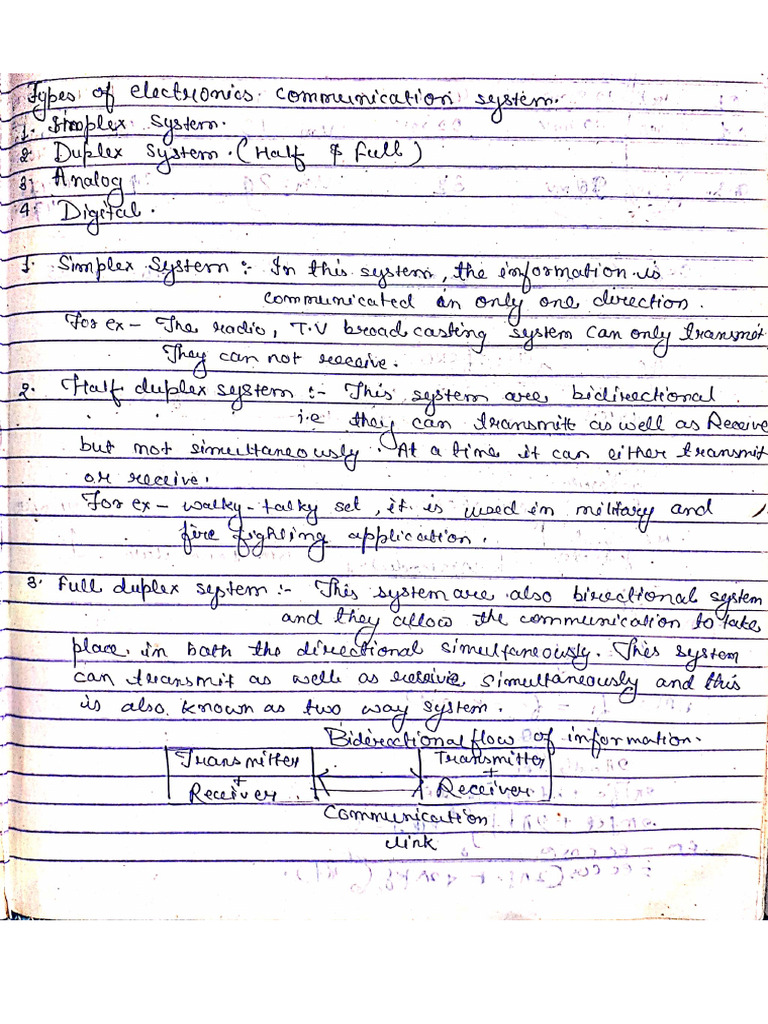 Types of electronics communication system.
1. Simplex system.
2. Duplex system. (Half & full)
3. Analog
4. Digital.
1. Simplex system :- In this system, the information is
communicated in only one direction.
For ex - The radio, T.V broadcasting system can only transmit
They can not receive.
2. Half duplex system :- This system are bidirectional
i.e they can transmitt as well as Receive
but not simultaneously. At a time it can either transmit
or receive.
For ex - walky-talky set, it is used in military and
fire fighting application.
3. Full duplex septem :- This system are also birectional system
and they allow the communication to take
place in both the directional simultaneously. This system
can transmit as well as receive simultaneously and this
is also known as two way system.
Bidirectional flow of information.
Transmitter Transmitter
+ +
Receiver. Receiver
Communication
link